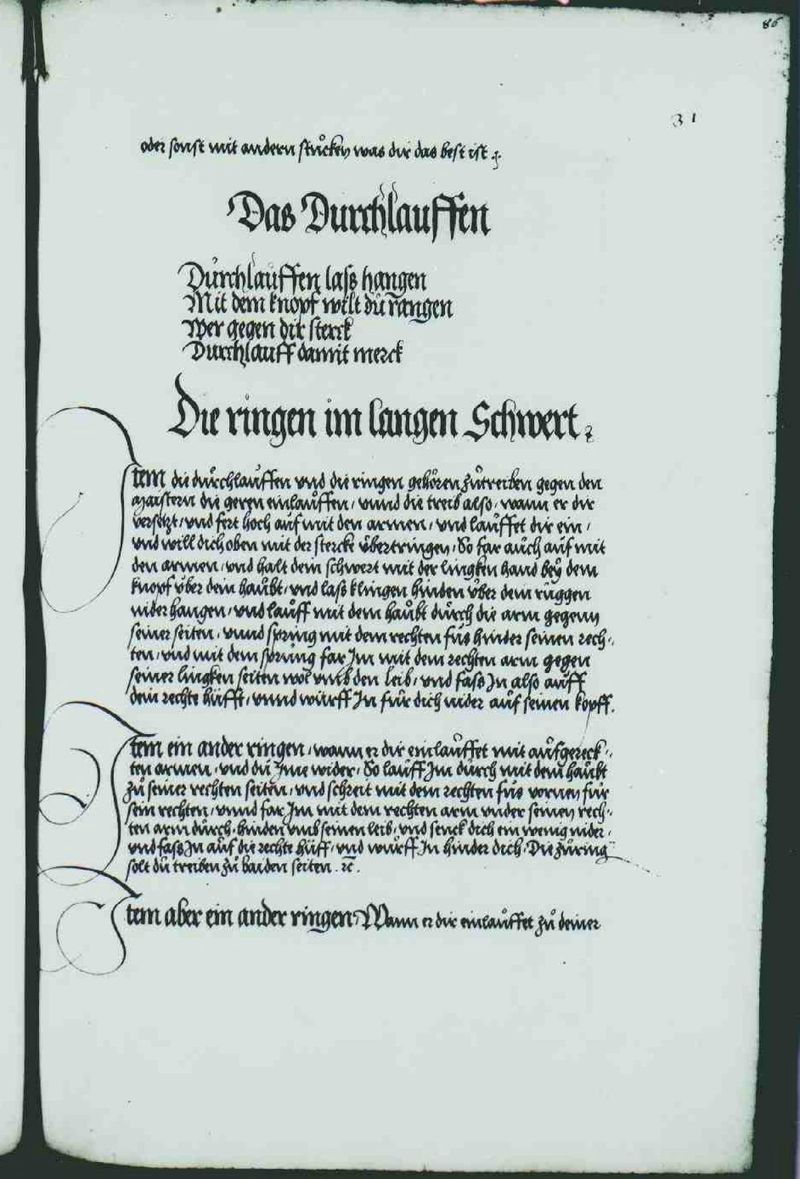 86
31
oder sonst mit andern stůcken was dir das best ist
Das Durchlauffen
Dúrchlauffen lasß hangen
Mit dem knopf wilt dú rangen
Wer gegen dir sterck
Durchlauff damit merck
Die ringen im langen Schwert
Item die dúrchlaúffen vnd die ringen gehören zútreiben gegen den
maistern die geren einlaúffen / vnnd die treib also / wann er dir
versetzt / vnd fert hoch aúf mit den armen / vnd laúffet dir ein /
vnd will dich oben mit der stercke úbertringen / So far aúch aúf mit
den armen / vnd halt dein schwert mit der lingken hand beÿ dem
knopf úber dein haúbt / vnd lasß klingen hinden úber dem rúggen
nider hangen / vnd laúff mit dem haúbt dúrch die arm gegenn
seiner seiten / vnnd spring mit dem rechten fús hinder seinen rech-
ten / vnd mit dem sprúng far Im mit dem rechten arm gegen
seiner lingken seiten wol vmb den leib / vnd fasß In also aúff
dein rechte húfft / vnnd wúrff In fúr dich nider aúf seinen kopff.
Item ein ander ringen / wann er dir einlaúffet mit aúfgereck-
ten armen / vnd dú Ime wider / So laúff Im dúrch mit dem haúbt
zú seiner rechten seiten / vnd schreit mit dem rechten fús vornen fúr
sein rechten / vnnd far Im mit dem rechten arm vnder seinen rech-
ten arm dúrch / hinden vmb seinen leib / vnd senck dich ein wenig nider /
vnd fasß In aúf die rechte húff / vnd wúrff In hinder dich / Die zúring
solt dú treiben zú baiden seiten . ꝛc .
Item aber ein ander ringen / Wann er dir einlaúffet zú deiner